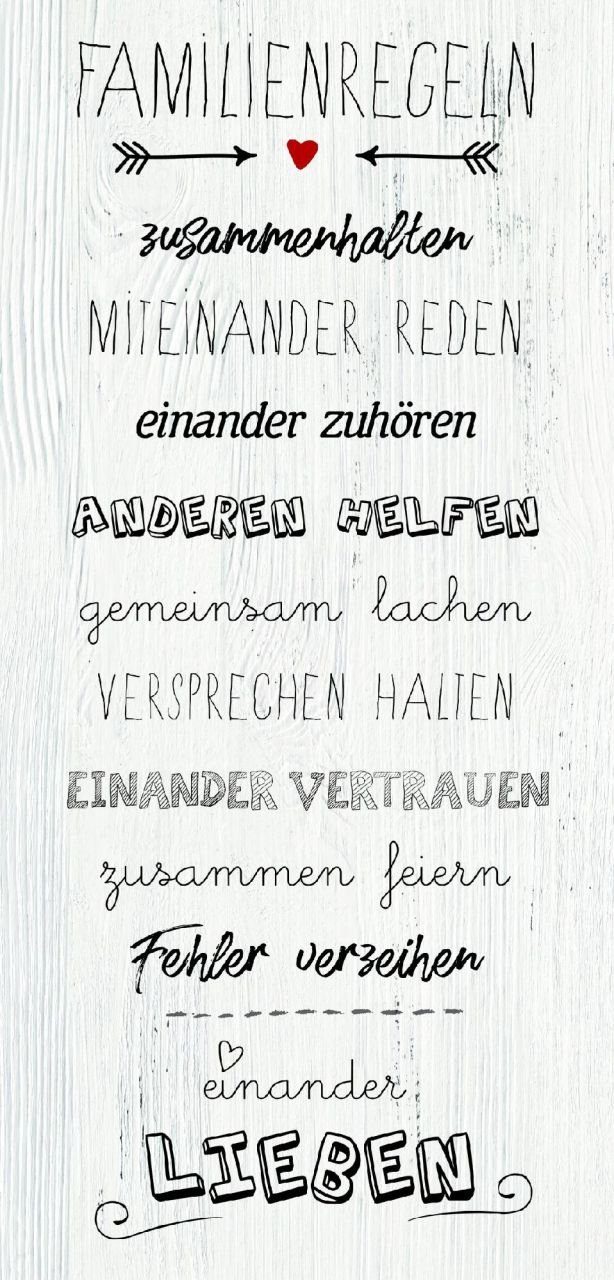 FAMILIENREGELN
zusammenhalten
MITEINANDER REDEN
einander zuhören
ANDEREN HELFEN
gemeinsam lachen
VERSPRECHEN HALTEN
EINANDER VERTRAUEN
zusammen feiern
Fehler verzeihen
einander
LIEBEN